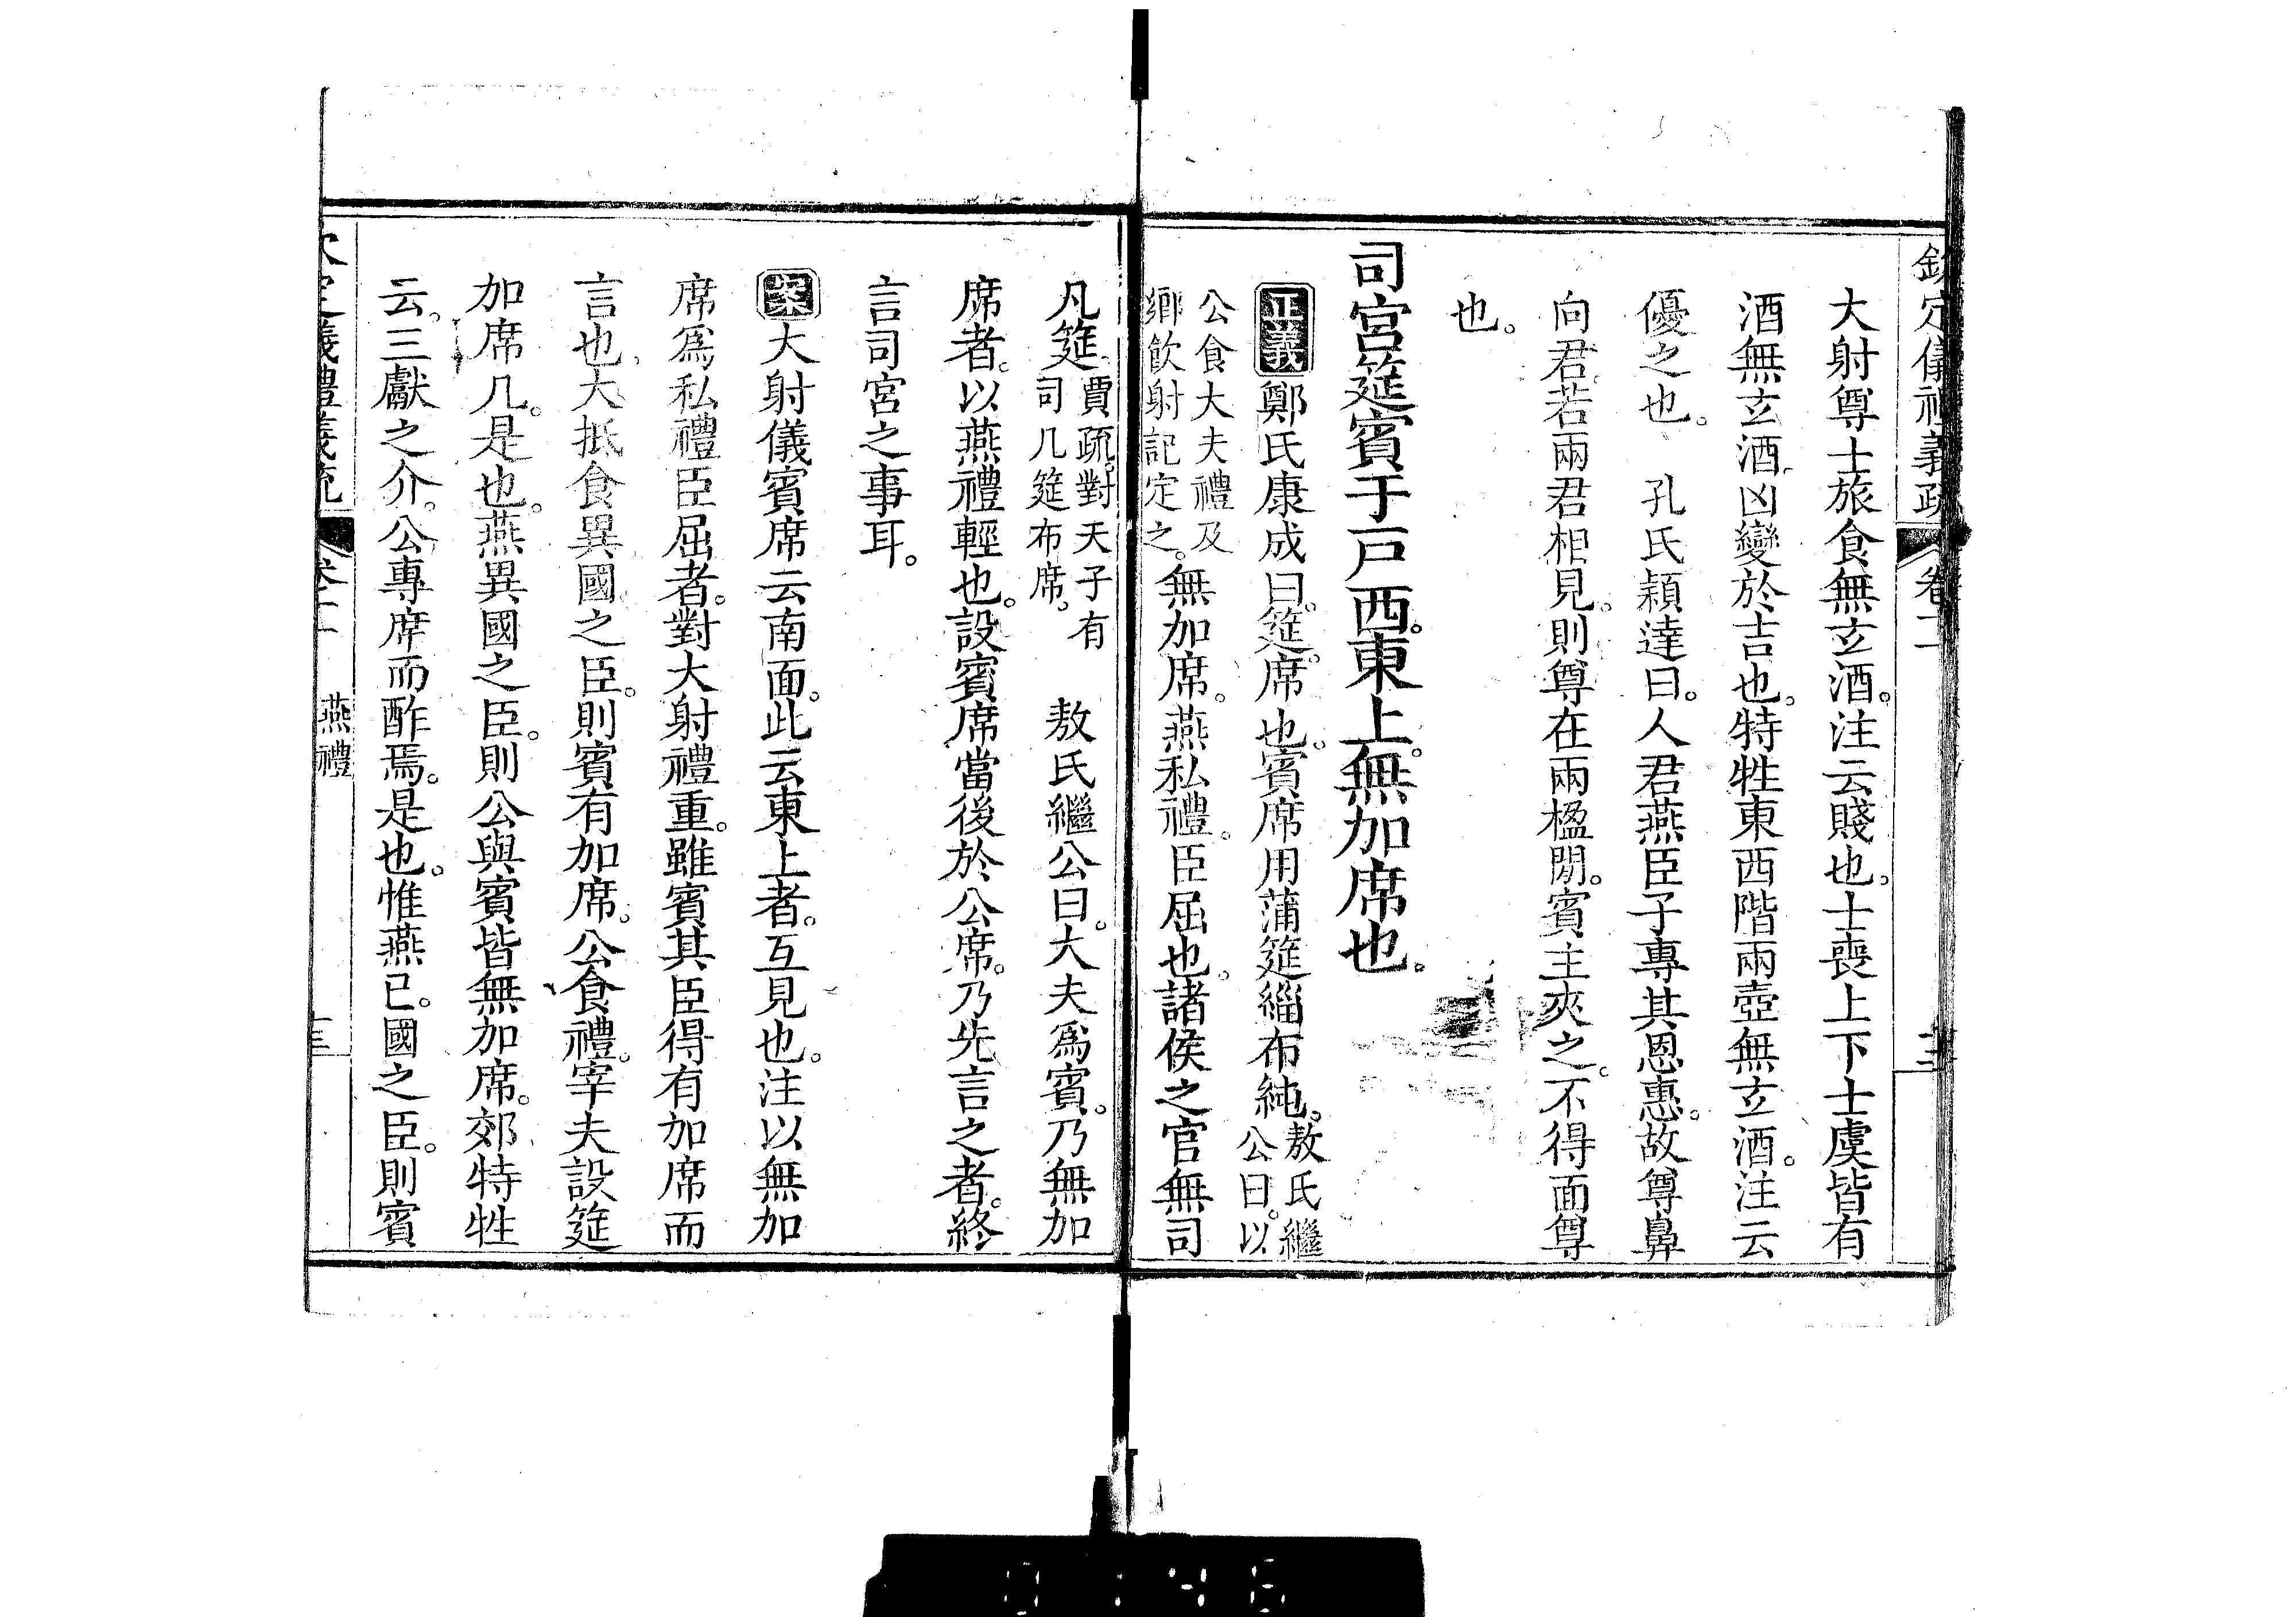 欽定儀禮義疏 卷十二
大射尊士旅食無玄酒。注云賤也。士喪上下士虞皆有
酒無玄酒。凶變於吉也。特牲東西階兩壺無玄酒。注云
優之也。 孔氏穎達曰。人君燕臣子專其恩惠。故尊鼻
向君。若兩君相見。則尊在兩楹閒。賓主夾之。不得面尊
也。
司宮筵賓于戶西。東上。無加席也。
正義 鄭氏康成曰。筵。席也。賓席用蒲筵緇布純。敖氏繼公曰。以
公食大夫禮及鄉飲射記定之。無加席。燕私禮。臣屈也。諸侯之官無司
凡筵。賈疏。對天子有司几筵布席。 敖氏繼公曰。大夫爲賓。乃無加
席者。以燕禮輕也。設賓席當後於公席。乃先言之者。終
言司宮之事耳。
案 大射儀賓席云南面。此云東上者。互見也。注以無加
席爲私禮臣屈者。對大射禮重。雖賓其臣得有加席而
言也。大抵食異國之臣。則賓有加席。公食禮。宰夫設筵
加席几。是也。燕異國之臣。則公與賓皆無加席。郊特牲
云。三獻之介。公專席而酢焉。是也。惟燕已國之臣。則賓
儀禮義疏 燕禮